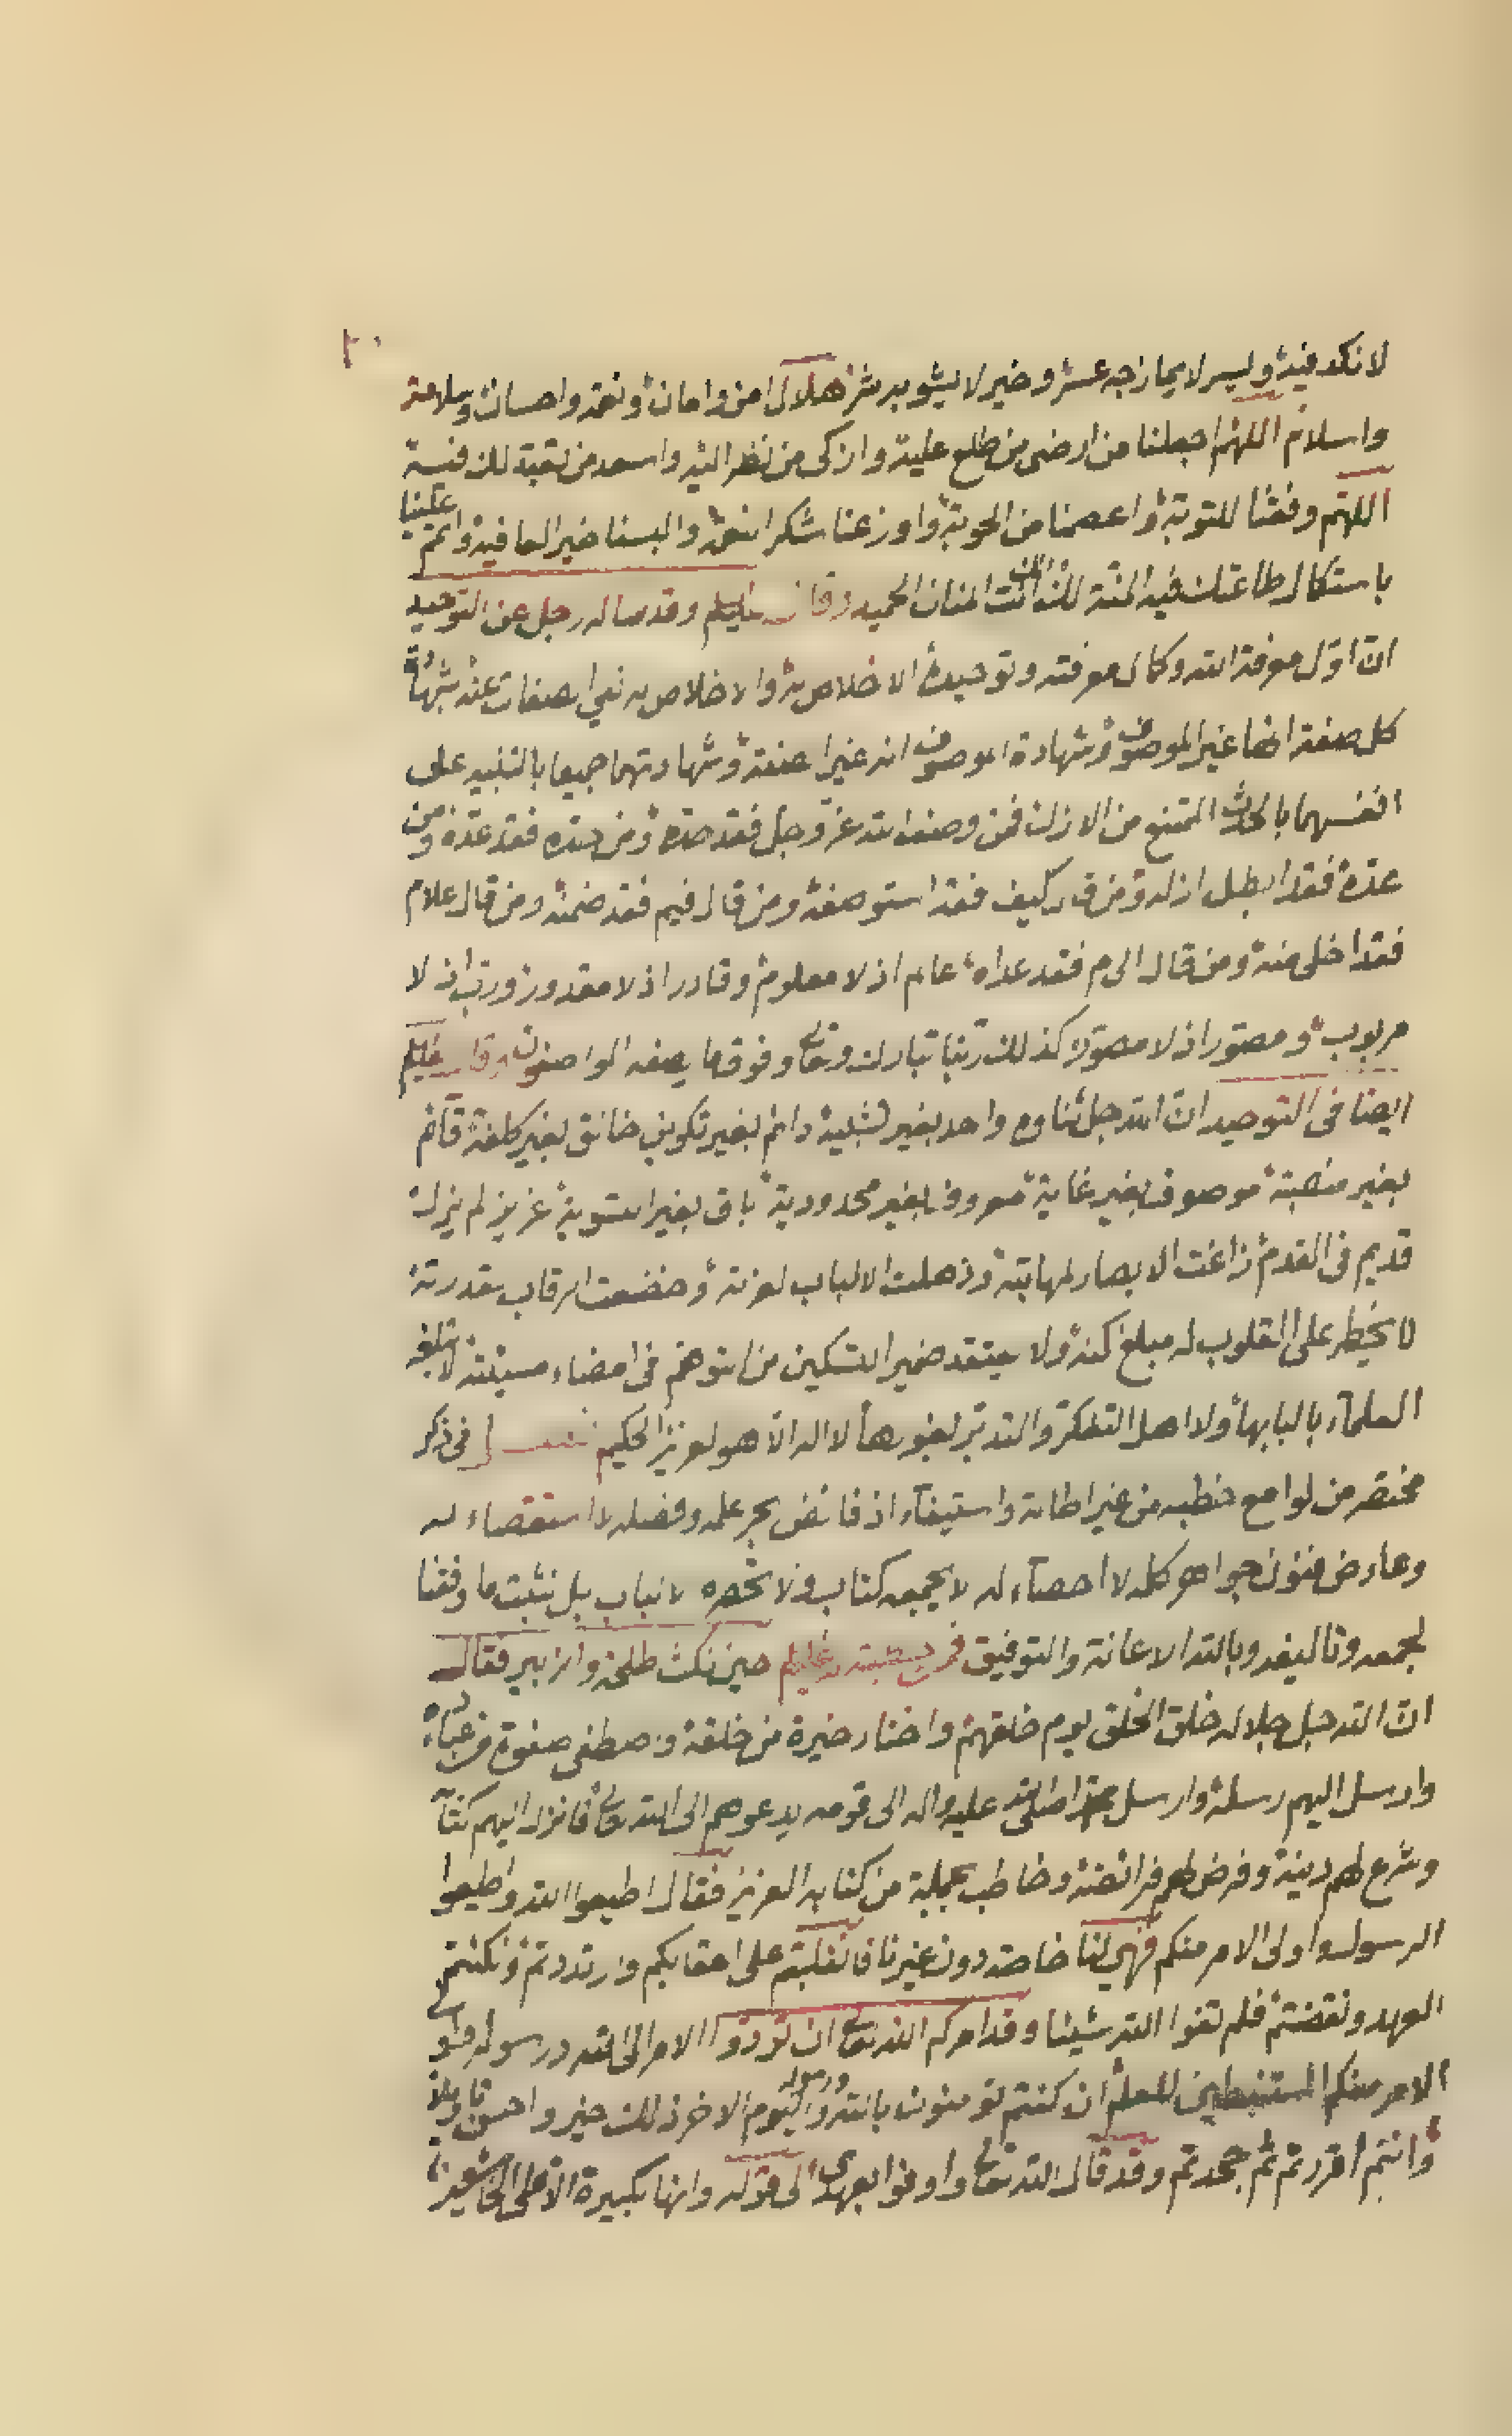 لا نكد فيه ويسر لا يمازجه عسر وخير لا يشوبه شر هلال امن وامان ونعمة واحسان وسلامة
واسلام اللهم اجعلنا من ارضى من طلع عليه وازكى من نظر اليه واسعد من تعبد لك فيه
اللهم وفقنا للتوبة واعصمنا من الحوبة واوزعنا شكر النعمة والبسنا خير العافية واتمم علينا
باستكمال طاعتك فيه المنة انك انت المنان الحميد وقال عليلم وقد ساله رجل عن التوحيد
ان اول معرفة الله وكمال معرفته وتوحيده الاخلاص به والاخلاص به نفي الصفات عنه بشهادة
كل صفة انها غير الموصوف وشهادة الموصوف انه غير الصفة وشهادتهما جميعا بالتنبيه على
انفسهما بالحدث الممتنع من الازل فمن وصف الله عز وجل فقد حده ومن حده فقد عده ومن
عده فقد ابطل ازله ومن قال كيف فقد استوصفه ومن قال فيم فقد ضمنه ومن قال علام
فقد اخلى منه ومن قال الى م فقد عداه عالم اذ لا معلوم وقادر اذ لا مقدور ورب اذ لا
مربوب ومصور اذ لا مصور كذلك ربنا تبارك وتعالى وفوق ما يصفه الواصفون وقال عليلم
ايضا في التوحيد ان الله جل ثناوه واحد بغير تشبيه دائم بغير تكوين خالق بغير كلفة قائم
بغير منصبة موصوف بغير غاية معروف بغير محدودية باق بغير تسوية عزيز لم يزل
قديم في القدم زاغت الابصار لمهابته وذهلت الالباب لعزته وخضعت الرقاب بقدرته
لا يخطر على القلوب له مبلغ كنه ولا يعتقد ضمير التسكين من التوهم في امضاء مشيئته لا تبلغه
العلماء بالبابها ولا اهل التفكر والتدبر بغيرها لا اله الا هو العزيز الحكيم فصل في ذكر
مختصر من لوامع خطبه من غير اطالة واستيفاء اذ فائض بحر علمه وفضله لا استقصاء له
وعارض فنون جواهر كله لا احصاء له لا يجمعه كتاب ولا تحصره لا نباب بل نثبت ما وفقنا
لجمعه وتاليفه وبالله الاعانة والتوفيق فمن خطبته عليلم حين نكث طلحة والزبير فقال
ان الله جل جلاله خلق الخلق يوم خلقهم واختار خيرة من خلقه واصطفى صفوة من عباده
وارسل اليهم رسله وارسل محمدا صلى الله عليه واله الى قومه يدعوهم الى الله تعالى فانزل اليهم كتابا
وشرع لهم دينه وفرض لهم فرائضه وخاطب بجملة من كتابه العزيز فقال اطيعوا الله واطيعوا
الرسول واولى الامر منكم فهي لنا خاصة دون غيرنا فانقلبتم على اعقابكم وارتددتم ونكثتم
العهد ونقضتم فلم تفوا الله شيئا وقد امركم الله تعالى ان تردوا الامر الى الله ورسوله واولى
الامر منكم المستنبطين للعلم ان كنتم تومنون بالله ورسوله واليوم الاخر ذلك خير واحسن تاويلا
وانتم اقررتم ثم جحدتم وقد قال الله تعالى واوفوا بعهدى الى قوله وانها لكبيرة الا على الخاشعين